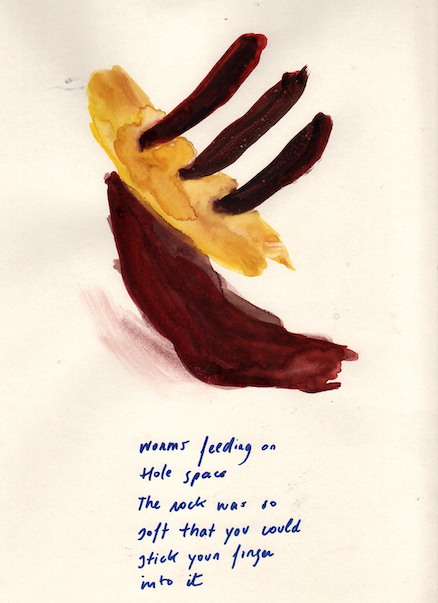 worms feeding on
Hole space
The rock was so
soft that you could
stick your finger
into it